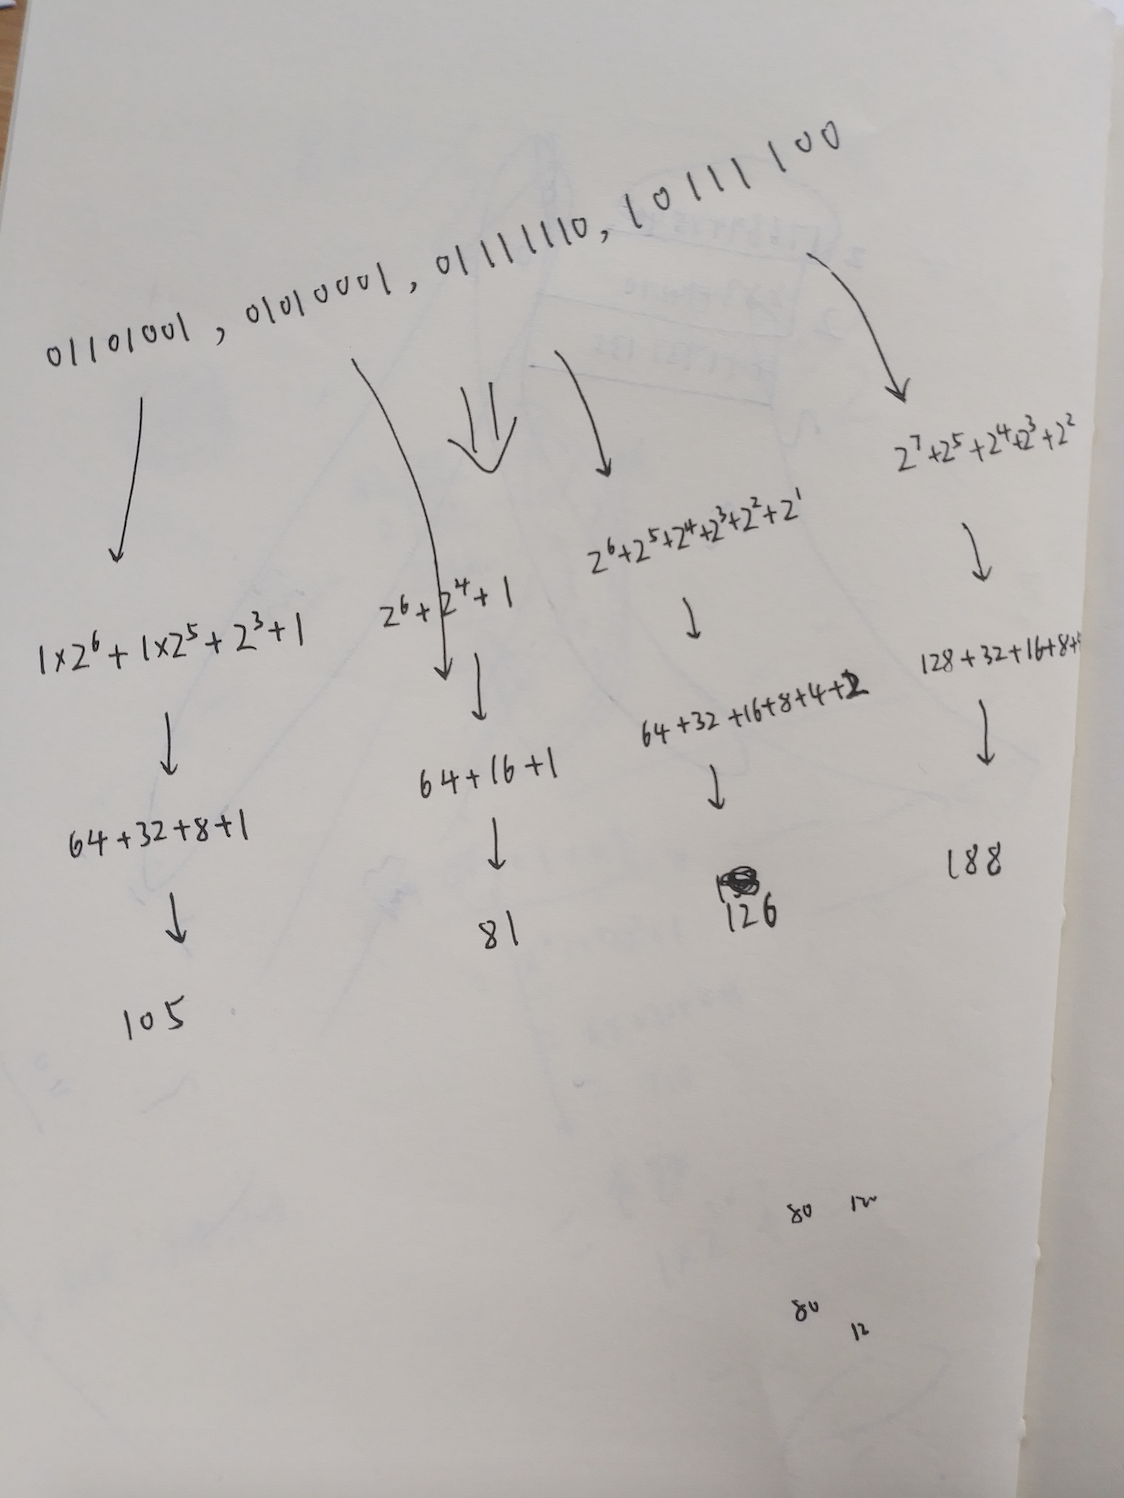 01101001 , 01010001 , 01111110 , 10111100
1×2⁶ + 1×2⁵ + 2³ + 1
64 + 32 + 8 + 1
105
2⁶ + 2⁴ + 1
64 + 16 + 1
81
2⁶+2⁵+2⁴+2³+2²+2¹
64+32+16+8+4+2
126
2⁷+2⁵+2⁴+2³+2²
128+32+16+8+
188
80 120
80
12